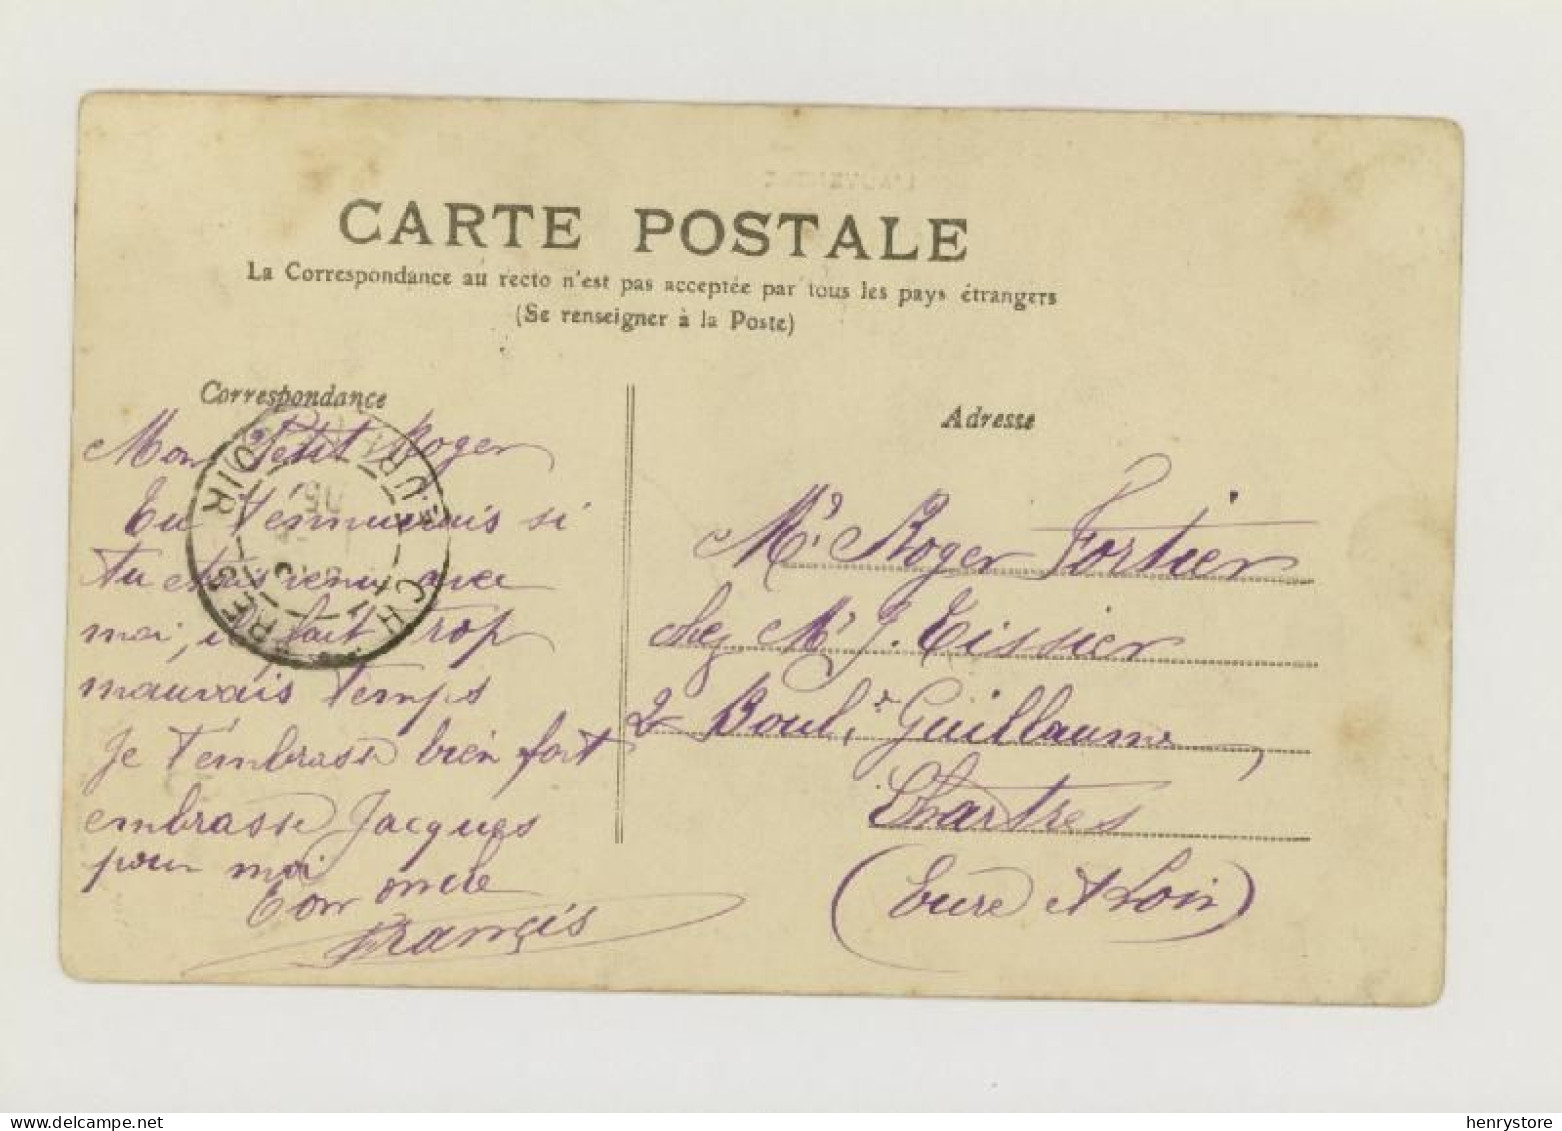 CARTE POSTALE
La Correspondance au recto n'est pas acceptée par tous les pays étrangers
(Se renseigner à la Poste)
Correspondance
Mon Petit Roger
Tu t'ennuierais si
tu étais venu avec
moi, il fait trop
mauvais temps
Je t'embrasse bien fort
embrasse Jacques
pour moi
Ton oncle
Français
Adresse
Mr Roger Fortier
chez Mr J. Tissier
2 Boul. Guillaume,
Chartres
(Eure et Loir)
CHARTRES
EURE-ET-LOIR
henrystore